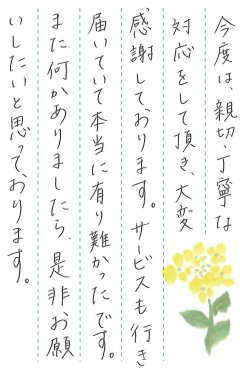 今度は、親切・丁寧な
対応をして頂き、大変
感謝しております。サービスも行き
届いていて本当に有り難かったです。
また何かありましたら、是非お願
いしたいと思っております。